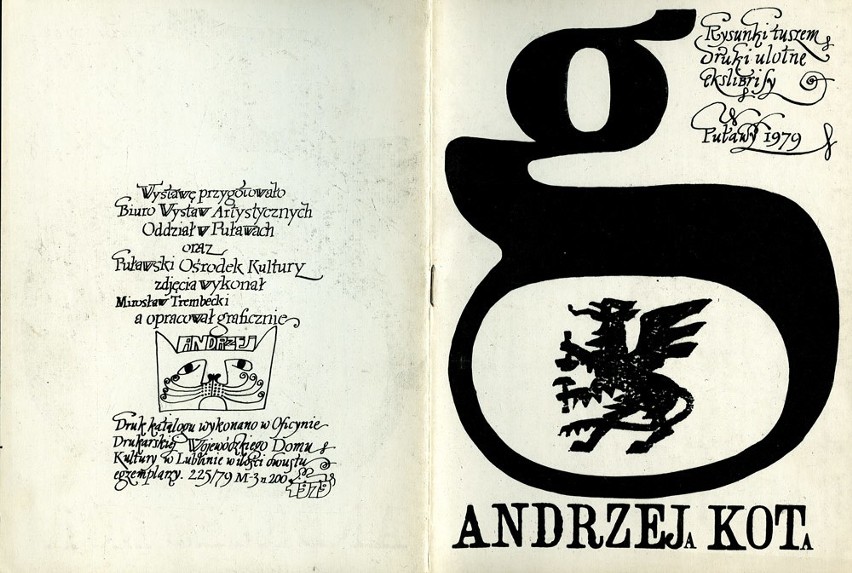 Wystawę przygotowało
Biuro Wystaw Artystycznych
Oddział w Puławach
oraz
Puławski Ośrodek Kultury
zdjęcia wykonał
Mirosław Trembecki
a opracował graficznie
ANDRZEJ
Druk katalogu wykonano w Oficynie
Drukarskiej Wojewódzkiego Domu
Kultury w Lublinie w ilości dwustu
egzemplarzy. 225/79 M-3 n 200
1979
g
Rysunki tuszem
druki ulotne
ekslibrisy
W
Puławy 1979
ANDRZEJa KOTa